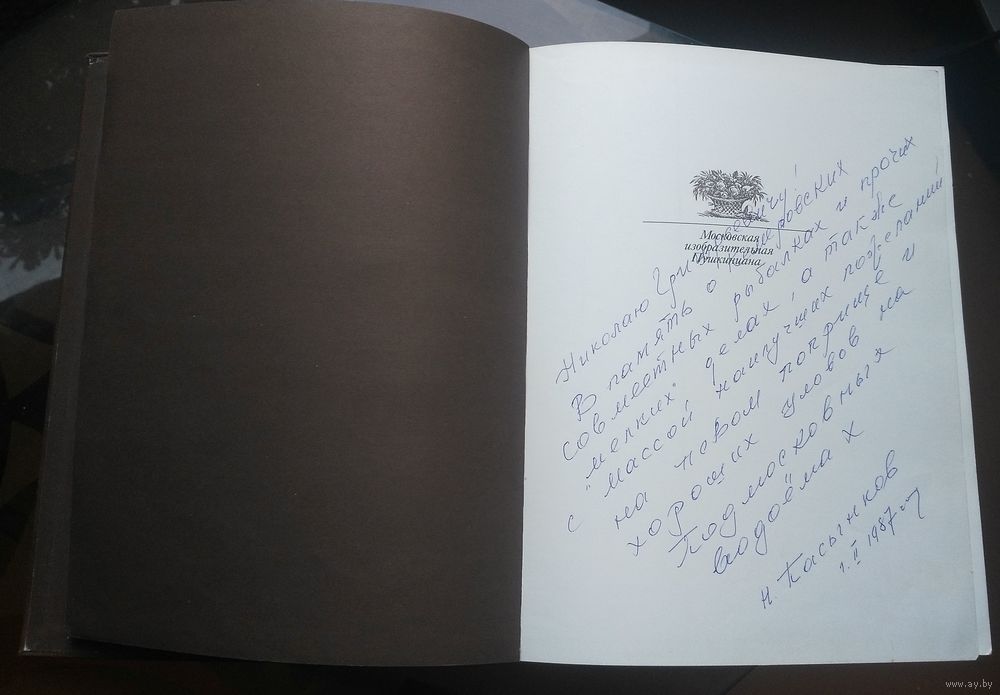 Московская
изобразительная
Пушкиниана
Николаю
В память о
совместных рыбалках и прочих
"мелких" делах, а также
с массой наилучших пожеланий
на новом поприще и
хороших уловов на
Подмосковных
водоёмах
Н. Пасынков
1. II 1987 г.
www.ay.by